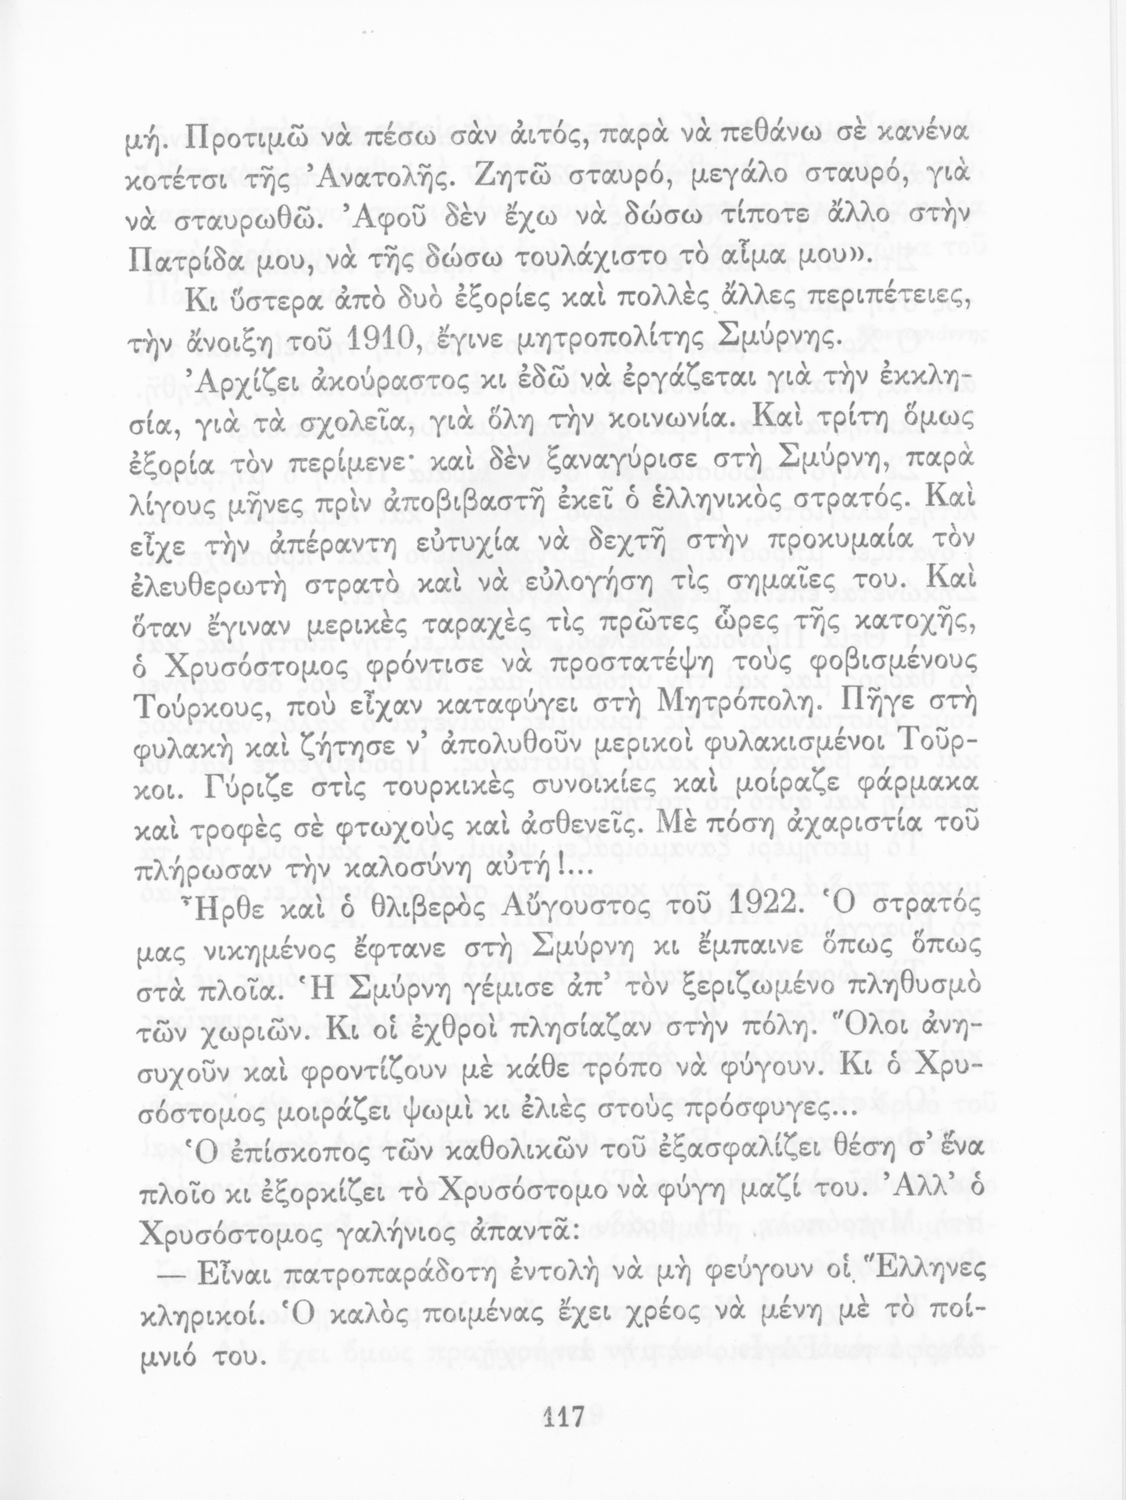 μή. Προτιμῶ νὰ πέσω σὰν ἀιτός, παρὰ νὰ πεθάνω σὲ κανένα
κοτέτσι τῆς Ἀνατολῆς. Ζητῶ σταυρό, μεγάλο σταυρό, γιὰ
νὰ σταυρωθῶ. Ἀφοῦ δὲν ἔχω νὰ δώσω τίποτε ἄλλο στὴν
Πατρίδα μου, νὰ τῆς δώσω τουλάχιστο τὸ αἷμα μου».
Κι ὕστερα ἀπὸ δυὸ ἐξορίες καὶ πολλὲς ἄλλες περιπέτειες,
τὴν ἄνοιξη τοῦ 1910, ἔγινε μητροπολίτης Σμύρνης.
Ἀρχίζει ἀκούραστος κι ἐδῶ νὰ ἐργάζεται γιὰ τὴν ἐκκλη-
σία, γιὰ τὰ σχολεῖα, γιὰ ὅλη τὴν κοινωνία. Καὶ τρίτη ὅμως
ἐξορία τὸν περίμενε· καὶ δὲν ξαναγύρισε στὴ Σμύρνη, παρὰ
λίγους μῆνες πρὶν ἀποβιβαστῆ ἐκεῖ ὁ ἑλληνικὸς στρατός. Καὶ
εἶχε τὴν ἀπέραντη εὐτυχία νὰ δεχτῆ στὴν προκυμαία τὸν
ἐλευθερωτὴ στρατὸ καὶ νὰ εὐλογήση τὶς σημαῖες του. Καὶ
ὅταν ἔγιναν μερικὲς ταραχὲς τὶς πρῶτες ὧρες τῆς κατοχῆς,
ὁ Χρυσόστομος φρόντισε νὰ προστατέψη τοὺς φοβισμένους
Τούρκους, ποὺ εἶχαν καταφύγει στὴ Μητρόπολη. Πῆγε στὴ
φυλακὴ καὶ ζήτησε ν’ ἀπολυθοῦν μερικοὶ φυλακισμένοι Τοῦρ-
κοι. Γύριζε στὶς τουρκικὲς συνοικίες καὶ μοίραζε φάρμακα
καὶ τροφὲς σὲ φτωχοὺς καὶ ἀσθενεῖς. Μὲ πόση ἀχαριστία τοῦ
πλήρωσαν τὴν καλοσύνη αὐτή!...
Ἦρθε καὶ ὁ θλιβερὸς Αὔγουστος τοῦ 1922. Ὁ στρατός
μας νικημένος ἔφτανε στὴ Σμύρνη κι ἔμπαινε ὅπως ὅπως
στὰ πλοῖα. Ἡ Σμύρνη γέμισε ἀπ’ τὸν ξεριζωμένο πληθυσμὸ
τῶν χωριῶν. Κι οἱ ἐχθροὶ πλησίαζαν στὴν πόλη. Ὅλοι ἀνη-
συχοῦν καὶ φροντίζουν μὲ κάθε τρόπο νὰ φύγουν. Κι ὁ Χρυ-
σόστομος μοιράζει ψωμὶ κι ἐλιὲς στοὺς πρόσφυγες...
Ὁ ἐπίσκοπος τῶν καθολικῶν τοῦ ἐξασφαλίζει θέση σ’ ἕνα
πλοῖο κι ἐξορκίζει τὸ Χρυσόστομο νὰ φύγη μαζί του. Ἀλλ’ ὁ
Χρυσόστομος γαλήνιος ἀπαντᾶ:
— Εἶναι πατροπαράδοτη ἐντολὴ νὰ μὴ φεύγουν οἱ Ἕλληνες
κληρικοί. Ὁ καλὸς ποιμένας ἔχει χρέος νὰ μένη μὲ τὸ ποί-
μνιό του.
117